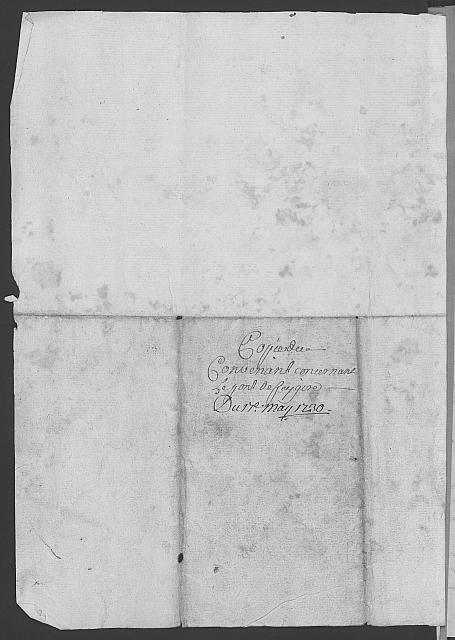 Copie du
Convenant concernant
le pont de
Du 17e. may 1730.